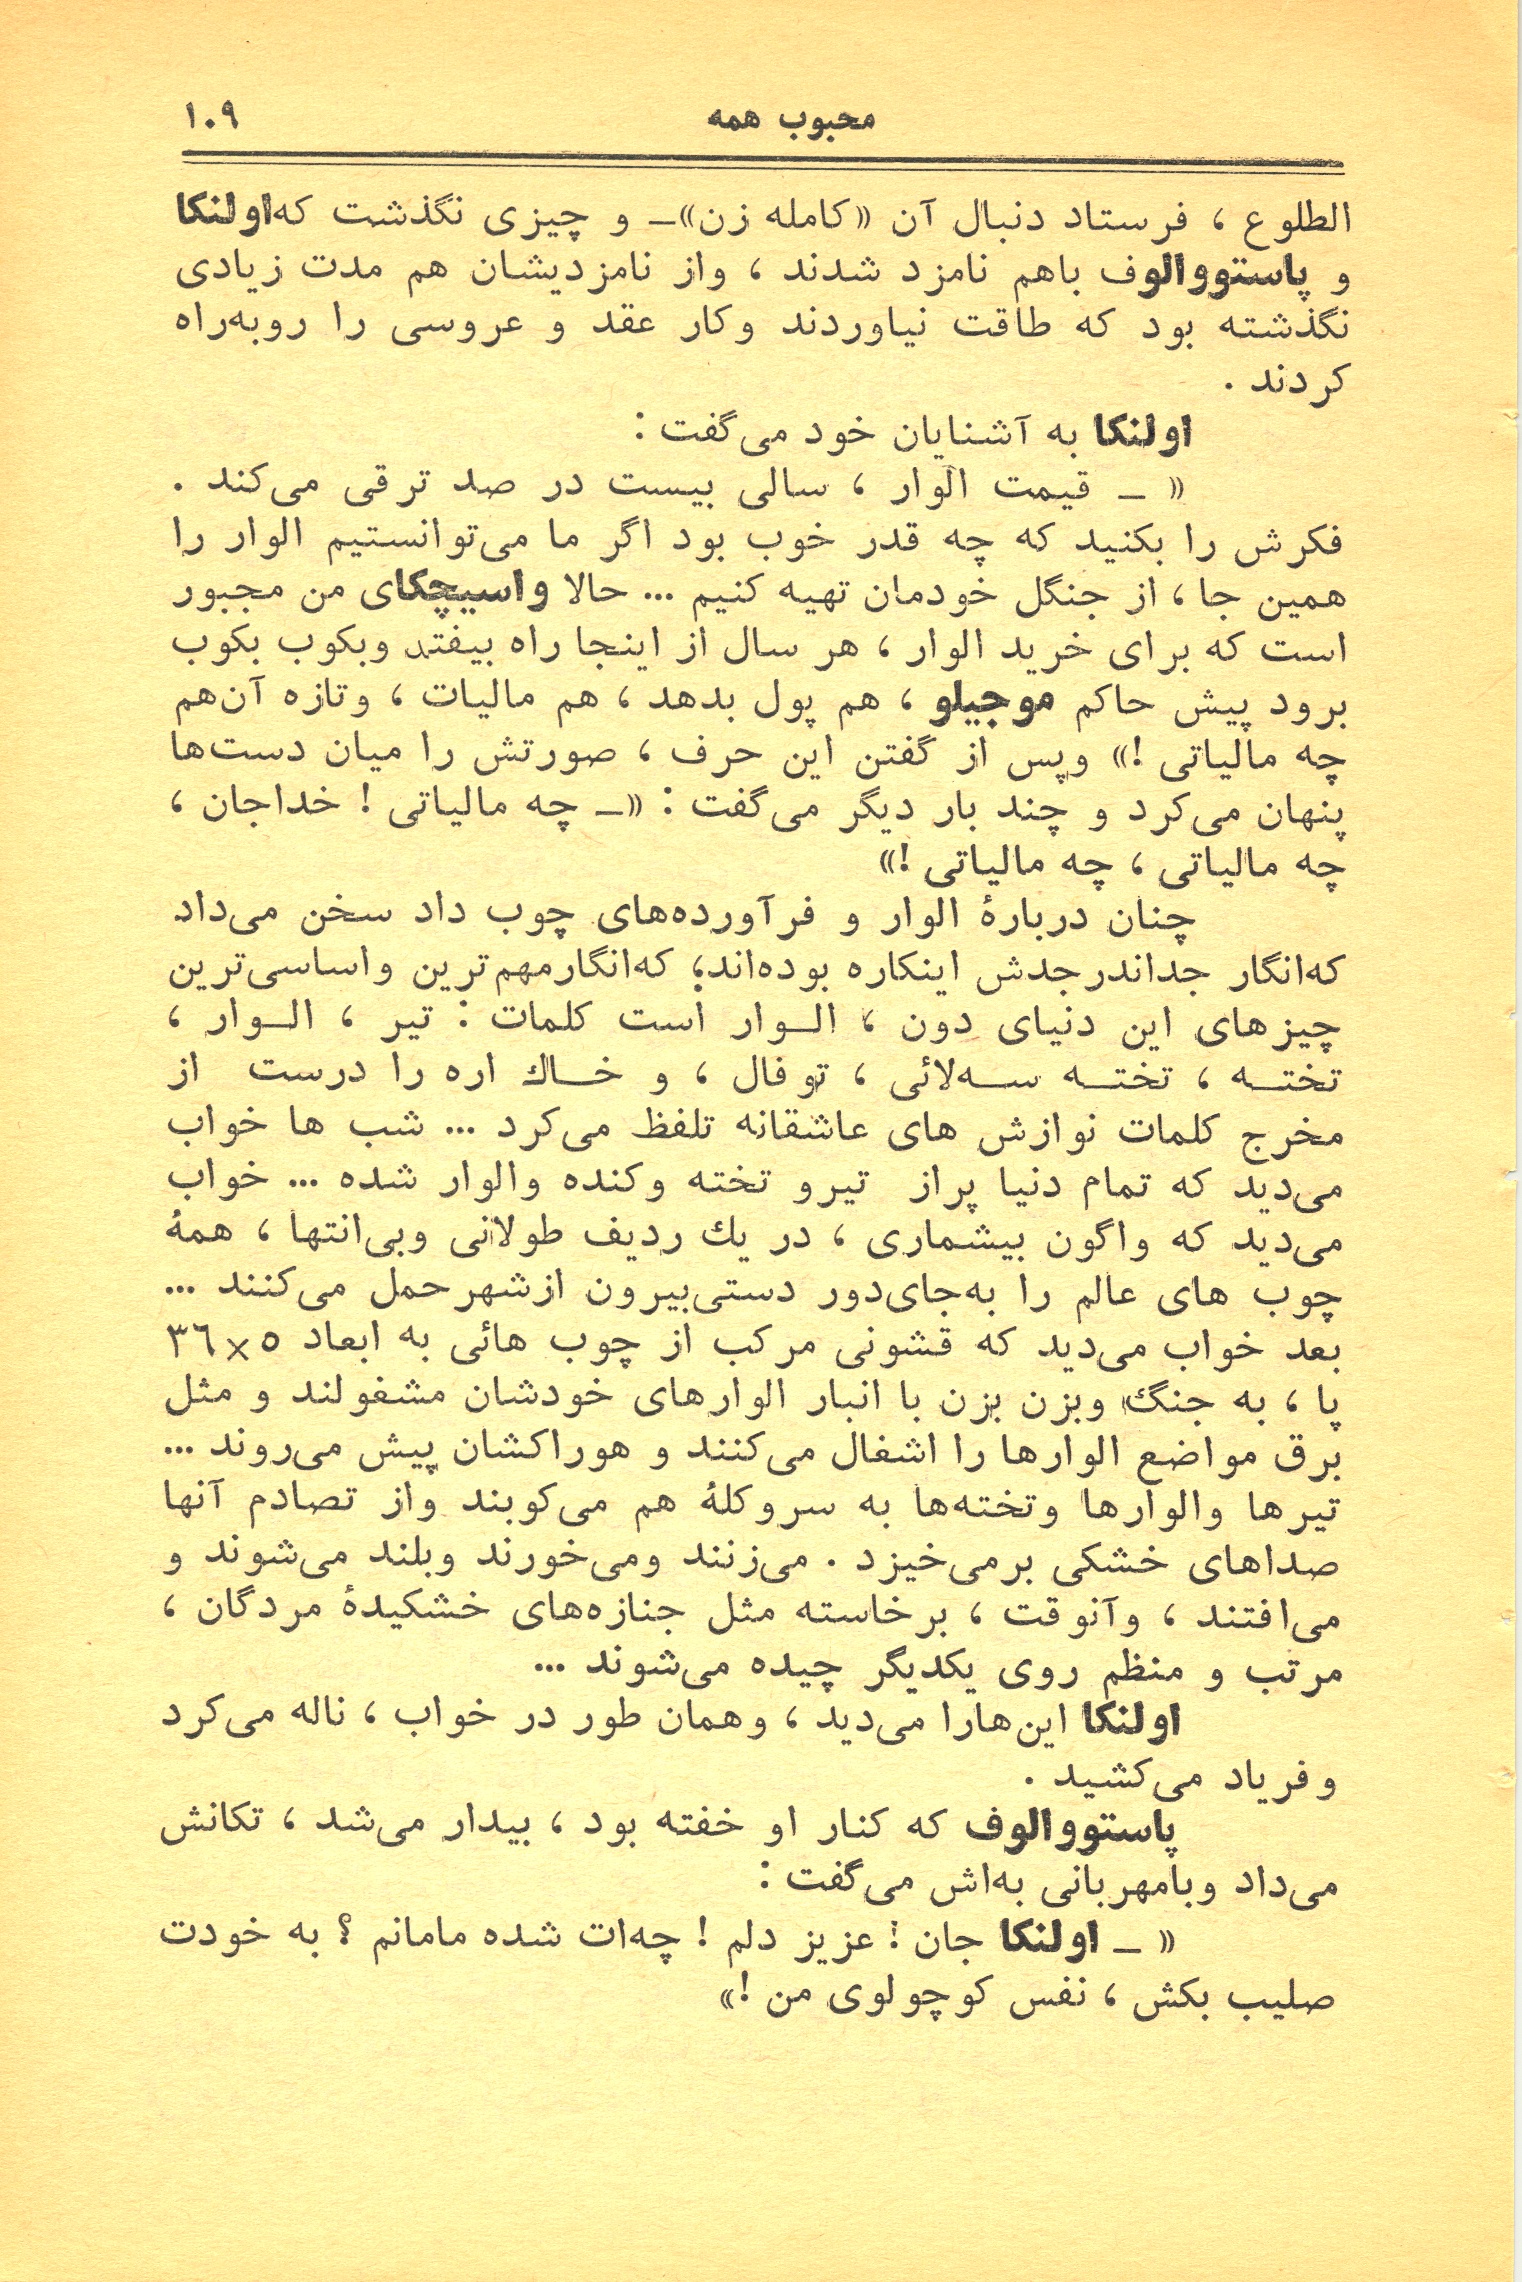 محبوب همه
۱۰۹
الطلوع ، فرستاد دنبال آن «کامله زن»ـ و چیزی نگذشت که اولنکا
و پاستووالوف باهم نامزد شدند ، واز نامزدیشان هم مدت زیادی
نگذشته بود که طاقت نیاوردند وکار عقد و عروسی را روبه‌راه
کردند .
اولنکا به آشنایان خود می‌گفت :
« ـ قیمت الوار ، سالی بیست در صد ترقی می‌کند .
فکرش را بکنید که چه قدر خوب بود اگر ما می‌توانستیم الوار را
همین جا ، از جنگل خودمان تهیه کنیم ... حالا واسیچکای من مجبور
است که برای خرید الوار ، هر سال از اینجا راه بیفتد وبکوب بکوب
برود پیش حاکم موجیلو ، هم پول بدهد ، هم مالیات ، وتازه آن‌هم
چه مالیاتی !» وپس از گفتن این حرف ، صورتش را میان دست‌ها
پنهان می‌کرد و چند بار دیگر می‌گفت : «ـ چه مالیاتی ! خداجان ،
چه مالیاتی ، چه مالیاتی !»
چنان دربارهٔ الوار و فرآورده‌های چوب داد سخن می‌داد
که‌انگار جداندرجدش اینکاره بوده‌اند؛ که‌انگارمهم‌ترین واساسی‌ترین
چیزهای این دنیای دون ، الـوار است کلمات : تیر ، الـوار ،
تختـه ، تختـه سـه‌لائی ، توفال ، و خـاك اره را درست از
مخرج کلمات نوازش های عاشقانه تلفظ می‌کرد ... شب ها خواب
می‌دید که تمام دنیا پراز تیرو تخته وکنده والوار شده ... خواب
می‌دید که واگون بیشماری ، در یك ردیف طولانی وبی‌انتها ، همهٔ
چوب های عالم را به‌جای‌دور دستی‌بیرون ازشهرحمل می‌کنند ...
بعد خواب می‌دید که قشونی مرکب از چوب هائی به ابعاد ۵×۳٦
پا ، به جنگ وبزن بزن با انبار الوارهای خودشان مشغولند و مثل
برق مواضع الوارها را اشغال می‌کنند و هوراکشان پیش می‌روند ...
تیرها والوارها وتخته‌ها به سروکلهٔ هم می‌کوبند واز تصادم آنها
صداهای خشکی برمی‌خیزد . می‌زنند ومی‌خورند وبلند می‌شوند و
می‌افتند ، وآنوقت ، برخاسته مثل جنازه‌های خشکیدهٔ مردگان ،
مرتب و منظم روی یکدیگر چیده می‌شوند ...
اولنکا این‌هارا می‌دید ، وهمان طور در خواب ، ناله می‌کرد
وفریاد می‌کشید .
پاستووالوف که کنار او خفته بود ، بیدار می‌شد ، تکانش
می‌داد وبامهربانی به‌اش می‌گفت :
« ـ اولنکا جان ! عزیز دلم ! چه‌ات شده مامانم ؟ به خودت
صلیب بکش ، نفس کوچولوی من !»